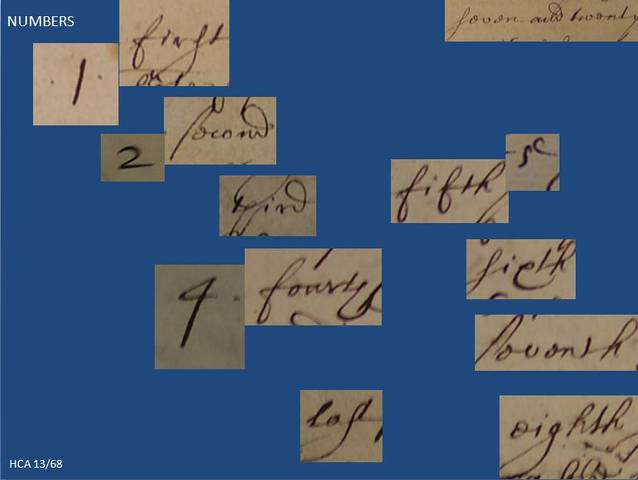 NUMBERS
seven and twenty
first
1
second
2
third
fifth
5e
4
fourth
sixth
seventh
last
eighth
HCA 13/68